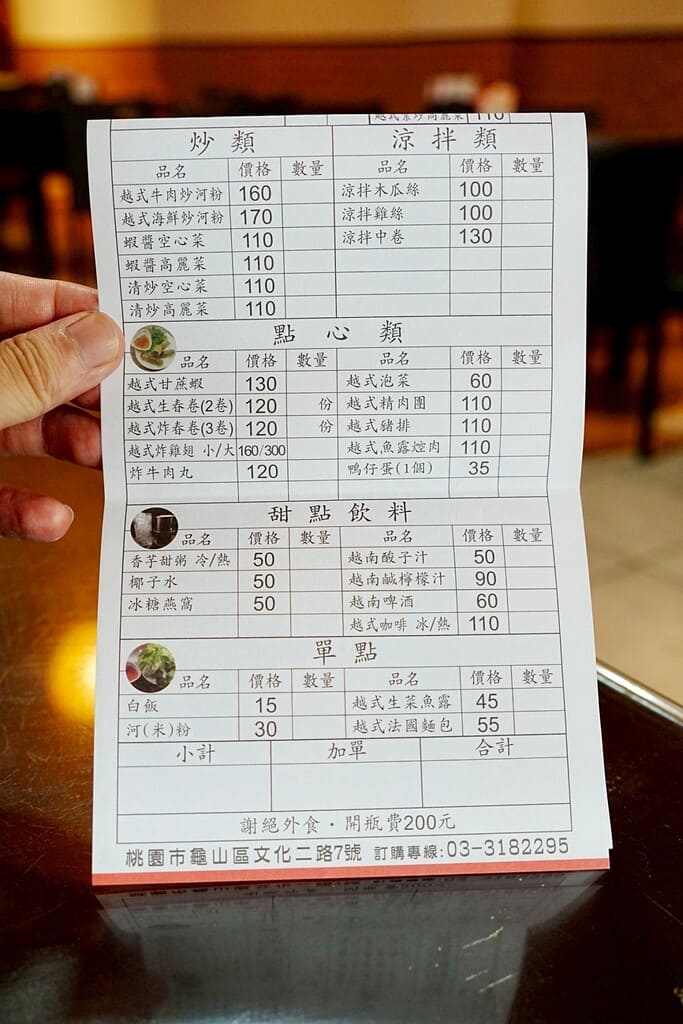 越式素炒高麗菜 110
炒類 涼拌類
品名 價格 數量 品名 價格 數量
越式牛肉炒河粉 160 涼拌木瓜絲 100
越式海鮮炒河粉 170 涼拌雞絲 100
蝦醬空心菜 110 涼拌中卷 130
蝦醬高麗菜 110
清炒空心菜 110
清炒高麗菜 110
點心類
品名 價格 數量 品名 價格 數量
越式甘蔗蝦 130 越式泡菜 60
越式生春卷(2卷) 120 份 越式精肉團 110
越式炸春卷(3卷) 120 份 越式豬排 110
越式炸雞翅 小/大 160/300 越式魚露焢肉 110
炸牛肉丸 120 鴨仔蛋(1個) 35
甜點飲料
品名 價格 數量 品名 價格 數量
香芋甜粥 冷/熱 50 越南酸子汁 50
椰子水 50 越南鹹檸檬汁 90
冰糖燕窩 50 越南啤酒 60
越式咖啡 冰/熱 110
單點
品名 價格 數量 品名 價格 數量
白飯 15 越式生菜魚露 45
河(米)粉 30 越式法國麵包 55
小計 加單 合計
謝絕外食・開瓶費200元
桃園市龜山區文化二路7號 訂購專線:03-3182295